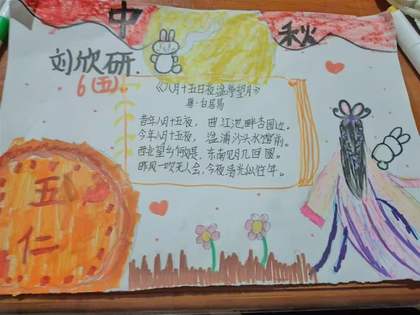 中秋
刘欣研
6(五)
《八月十五日夜湓亭望月》
唐·白居易
昔年八月十五夜，曲江池畔杏园边。
今年八月十五夜，湓浦沙头水馆前。
西北望乡何处是，东南见月几回圆。
昨风一吹无人会，今夜清光似往年。
五
仁